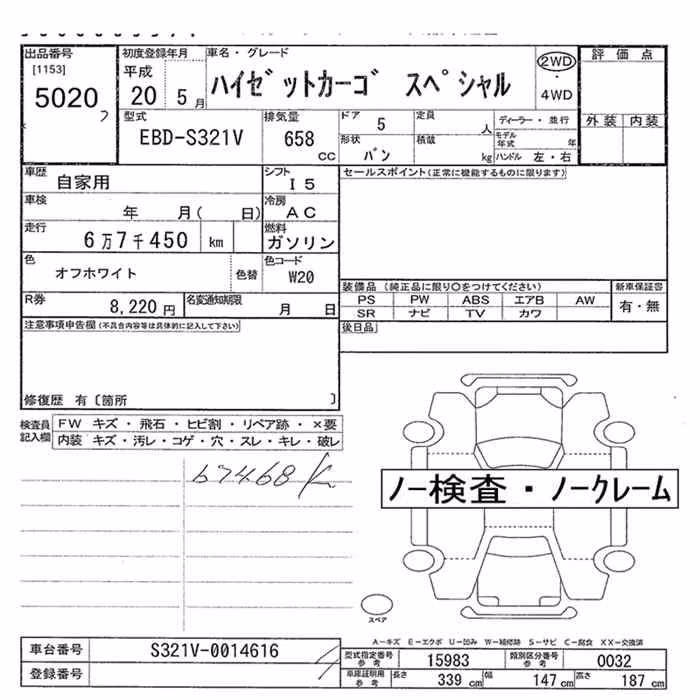 出品番号 初度登録年月 車名・グレード 評価点
[1153] 平成 ハイゼットカーゴ スペシャル 2WD
5020 20 5月 ・ 4WD
型式 排気量 ドア 定員 ディーラー・並行 外装 内装
EBD-S321V 658 cc 5 人 モデル年式 年
形状 バン 積載 kg ハンドル 左・右
車歴 自家用 シフト I5 セールスポイント(正常に機能するものに限ります)
車検 年 月( 日) 冷房 AC
走行 6万7千450 km 燃料 ガソリン
色 オフホワイト 色替 色コード W20
装備品(純正品に限り○をつけてください) 新車保証書
R券 8,220円 名変通知期限 月 日 PS PW ABS エアB AW 有・無
SR ナビ TV カワ
注意事項申告欄(不具合内容等は具体的に記入して下さい) 後日品
修復歴 有〔箇所 〕
検査員記入欄 FW キズ・飛石・ヒビ割・リペア跡・×要
内装 キズ・汚レ・コゲ・穴・スレ・キレ・破レ
67468K
ノー検査・ノークレーム
スペア
A-キズ E-エクボ U-凹み W-補修跡 S-サビ C-腐食 XX-交換済
車台番号 S321V-0014616 型式指定番号参考 15983 類別区分番号参考 0032
登録番号 車庫証明用参考 長さ 339cm 幅 147cm 高さ 187cm